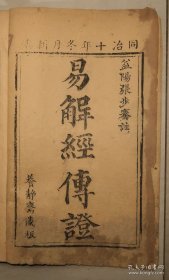 同治十年冬月新鐫
益陽張步騫註
易解經傳證
養靜齋藏板